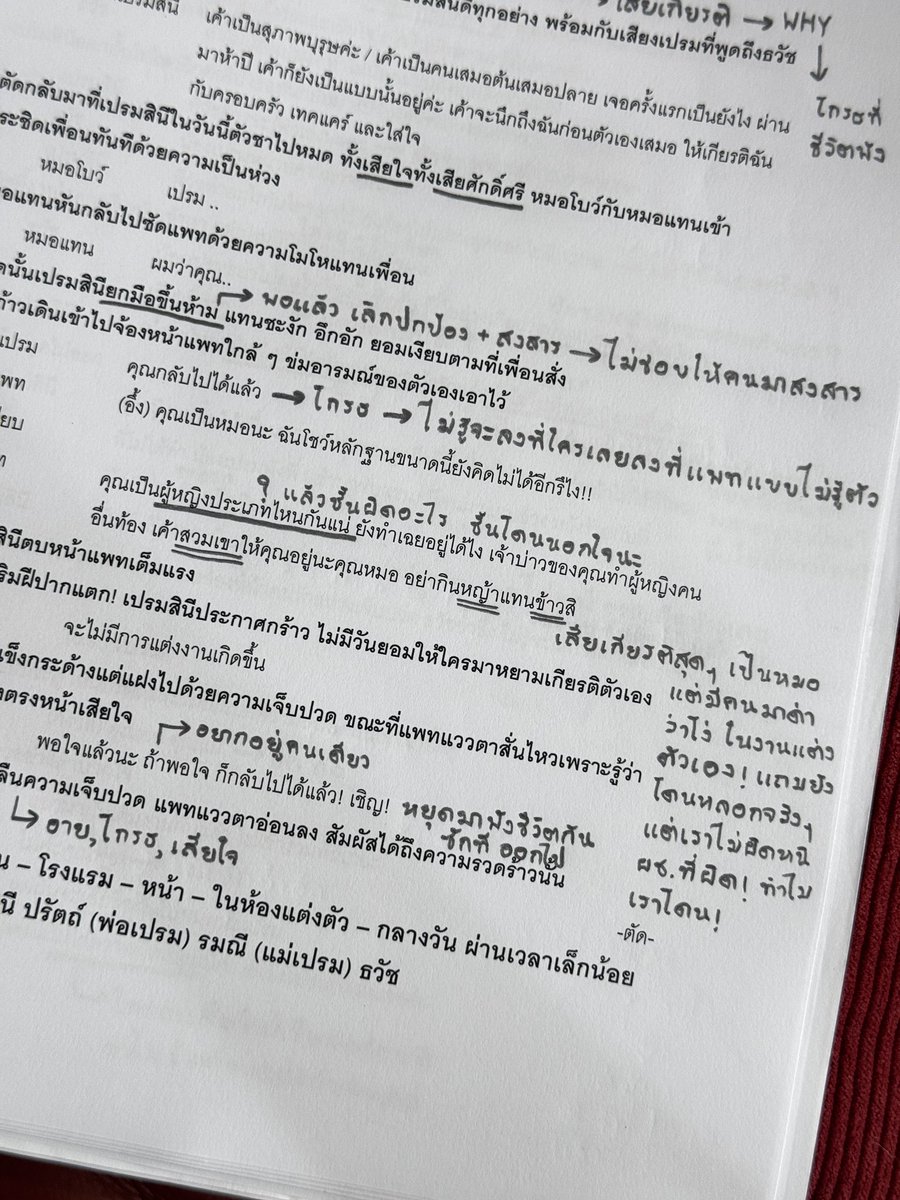 เสียเกียรติ → WHY
ปรมสินีดีทุกอย่าง พร้อมกับเสียงเปรมที่พูดถึงธวัช
↓
โกรธที่
ชีวิตพัง
ปรมสินี เค้าเป็นสุภาพบุรุษค่ะ / เค้าเป็นคนเสมอต้นเสมอปลาย เจอครั้งแรกเป็นยังไง ผ่าน
มาห้าปี เค้าก็ยังเป็นแบบนั้นอยู่ค่ะ เค้าจะนึกถึงฉันก่อนตัวเองเสมอ ให้เกียรติฉัน
กับครอบครัว เทคแคร์ และใส่ใจ
ตัดกลับมาที่เปรมสินีในวันนี้ตัวชาไปหมด ทั้งเสียใจทั้งเสียศักดิ์ศรี หมอโบว์กับหมอแทนเข้า
ระชิดเพื่อนทันทีด้วยความเป็นห่วง
หมอโบว์ เปรม ..
อแทนหันกลับไปซัดแพทด้วยความโมโหแทนเพื่อน
หมอแทน ผมว่าคุณ..
→ พอแล้ว เลิกปกป้อง + สงสาร → ไม่ชอบให้คนมาสงสาร
นั้นเปรมสินียกมือขึ้นห้าม แทนชะงัก อึกอัก ยอมเงียบตามที่เพื่อนสั่ง
ก้าวเดินเข้าไปจ้องหน้าแพทใกล้ ๆ ข่มอารมณ์ของตัวเองเอาไว้
เปรม คุณกลับไปได้แล้ว → โกรธ → ไม่รู้จะลงที่ใครเลยลงที่แพทแบบไม่รู้ตัว
พท (อึ้ง) คุณเป็นหมอนะ ฉันโชว์หลักฐานขนาดนี้ยังคิดไม่ได้อีกรึไง!!
ยบ
แล้วชั้นผิดอะไร ชั้นโดนนอกใจนะ
คุณเป็นผู้หญิงประเภทไหนกันแน่ ยังทำเฉยอยู่ได้ไง เจ้าบ่าวของคุณทำผู้หญิงคน
อื่นท้อง เค้าสวมเขาให้คุณอยู่นะคุณหมอ อย่ากินหญ้าแทนข้าวสิ
สินีตบหน้าแพทเต็มแรง
ริมฝีปากแตก! เปรมสินีประกาศกร้าว ไม่มีวันยอมให้ใครมาหยามเกียรติตัวเอง
จะไม่มีการแต่งงานเกิดขึ้น
เสียเกียรติสุดๆ เป็นหมอ
แต่มีคนมาด่า
ว่าโง่ ในงานแต่ง
ตัวเอง! แถมยัง
โดนหลอกจริงๆ
แต่เราไม่ผิดหนิ
ผช. ที่ผิด! ทำไม
เราโดน!
แข็งกระด้างแต่แฝงไปด้วยความเจ็บปวด ขณะที่แพทแววตาสั่นไหวเพราะรู้ว่า
งตรงหน้าเสียใจ
→ อยากอยู่คนเดียว
พอใจแล้วนะ ถ้าพอใจ ก็กลับไปได้แล้ว! เชิญ! หยุดมาพังชีวิตกัน
ซักที ออกไป
ลืนความเจ็บปวด แพทแววตาอ่อนลง สัมผัสได้ถึงความรวดร้าวนั้น
→ อาย, โกรธ, เสียใจ
-ตัด-
น – โรงแรม – หน้า – ในห้องแต่งตัว – กลางวัน ผ่านเวลาเล็กน้อย
นี ปรัตถ์ (พ่อเปรม) รมณี (แม่เปรม) ธวัช